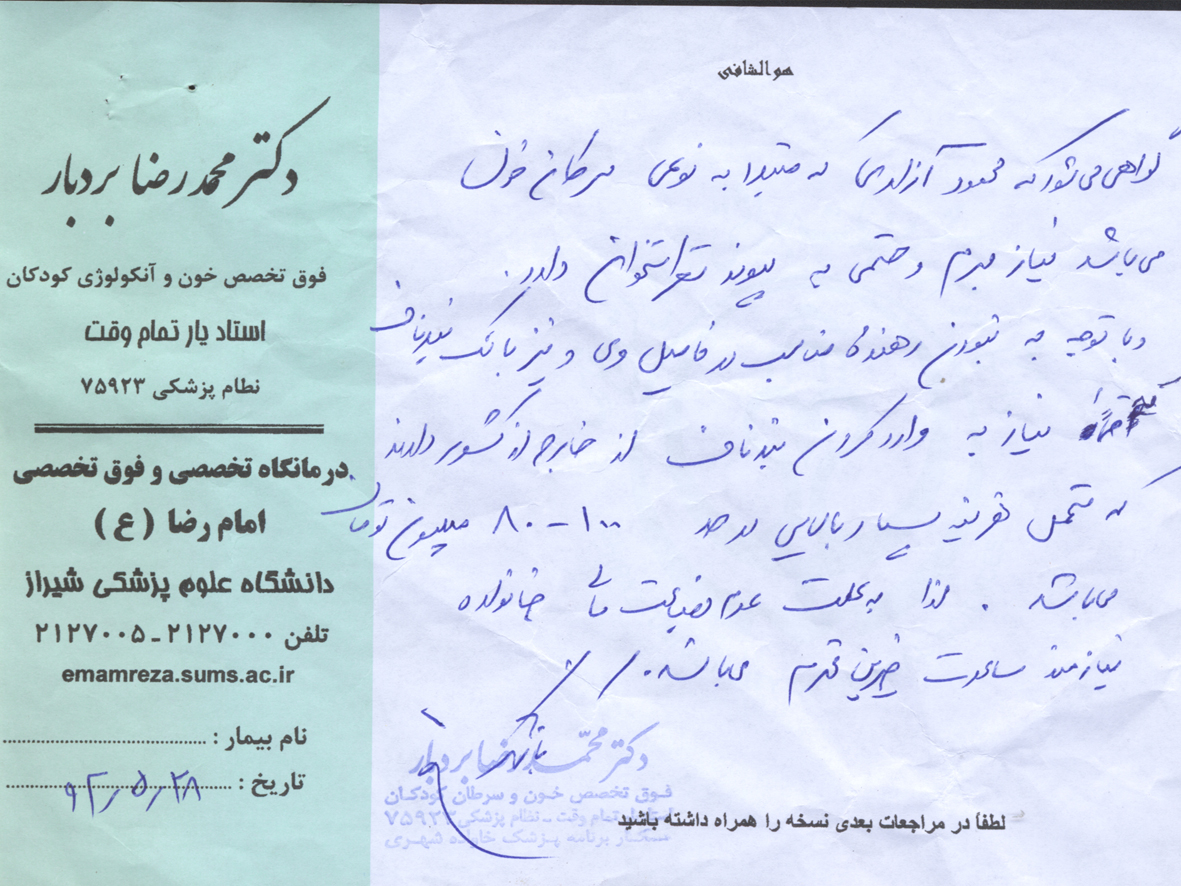 هوالشافی
گواهی می‌شود که محمود آزادی که مبتلا به نوعی سرطان خون
می‌باشد نیاز مبرم و حتمی به پیوند مغز استخوان دارد.
و با توجه به نبودن دهندهٔ مناسب در فامیل وی و نیز بانک بندناف
نیاز به وارد کردن بندناف از خارج از کشور دارند
که متحمل هزینه بسیار بالایی در حد ۱۰۰-۸۰ میلیون تومان
می‌باشد. لذا به علت عدم بضاعت مالی خانواده
نیازمند مساعدت خیرین محترم می‌باشد.
دکتر محمدرضا بردبار
فوق تخصص خون و آنکولوژی کودکان
استاد یار تمام وقت
نظام پزشکی ۷۵۹۲۳
درمانگاه تخصصی و فوق تخصصی
امام رضا (ع)
دانشگاه علوم پزشکی شیراز
تلفن ۲۱۲۷۰۰۰ـ۲۱۲۷۰۰۵
emamreza.sums.ac.ir
نام بیمار :
تاریخ : ۹۲,۵,۲۸
دکتر محمدرضا بردبار
فوق تخصص خون و سرطان کودکان
تمام وقت ـ نظام پزشکی ۷۵۹۲۳
همکار برنامه پزشک خانواده شهری
لطفا در مراجعات بعدی نسخه را همراه داشته باشید